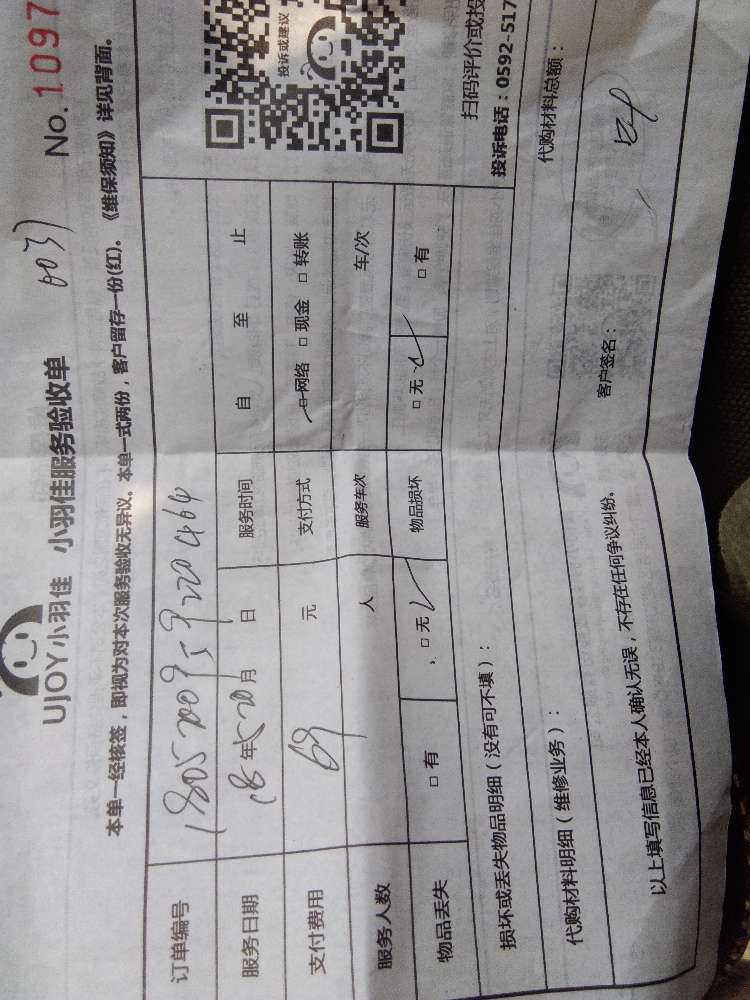 UJOY小羽佳 小羽佳服务验收单 6037 No.1097
本单一经核签，即视为对本次服务验收无异议。本单一式两份，客户留存一份(红)。《维保须知》详见背面。
订单编号
服务日期 18年5 20月 日 服务时间 自 至 止
支付费用 69 元 支付方式 □网络 □现金 □转账
服务人数 人 服务车次 车/次
物品丢失 □有 □无 物品损坏 □无 □有
投诉或建议
扫码评价或投
投诉电话：0592-517
损坏或丢失物品明细（没有可不填）：
代购材料明细（维修业务）： 代购材料总额：
以上填写信息已经本人确认无误，不存在任何争议纠纷。 客户签名：